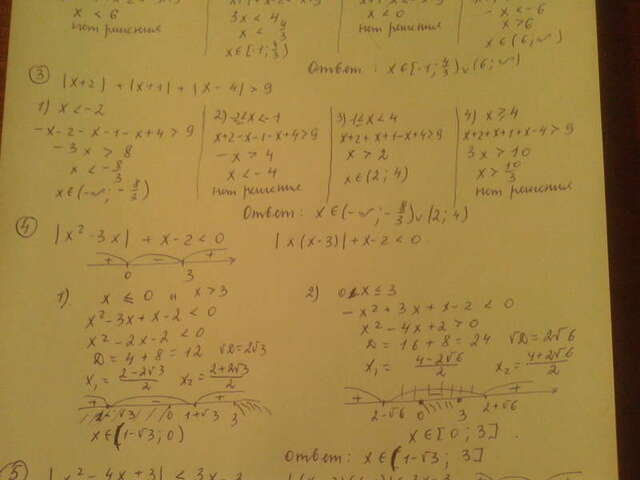 x < 6
нет решения
3x < 4
x < 4/3
x ∈ [-1; 4/3)
x < 0
нет решения
-x < -6
x > 6
x ∈ (6; ∞)
Ответ: x ∈ [-1; 4/3) ∪ (6; ∞)
③ |x+2| + |x+1| + |x-4| > 9
1) x < -2
-x-2-x-1-x+4 > 9
-3x > 8
x < -8/3
x ∈ (-∞; -8/3)
2) -2 ≤ x < -1
x+2-x-1-x+4 > 9
-x > 4
x < -4
нет решения
3) -1 ≤ x < 4
x+2+x+1-x+4 > 9
x > 2
x ∈ (2; 4)
4) x ≥ 4
x+2+x+1+x-4 > 9
3x > 10
x > 10/3
нет решения
Ответ: x ∈ (-∞; -8/3) ∪ (2; 4)
④ |x²-3x| + x-2 < 0 |x(x-3)| + x-2 < 0
+ - +
0 3
1) x ≤ 0 и x > 3
x²-3x+x-2 < 0
x²-2x-2 < 0
D = 4+8 = 12 √D = 2√3
x₁ = (2-2√3)/2 x₂ = (2+2√3)/2
+ - +
1-√3 0 1+√3 3
x ∈ (1-√3; 0)
2) 0 < x ≤ 3
-x²+3x+x-2 < 0
x²-4x+2 > 0
D = 16+8 = 24 √D = 2√6
x₁ = (4-2√6)/2 x₂ = (4+2√6)/2
+ - +
2-√6 0 3 2+√6
x ∈ [0; 3]
Ответ: x ∈ (1-√3; 3]
⑤ |x²-4x+3| < 3x-3